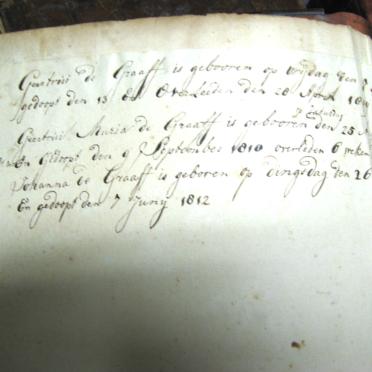 Geertrui de Graaff is gebooren op vrydag den
gedoopt den 13 En Overleeden den 28 April 18
Zaturdag
Geertrui Maria de Graaff is gebooren den 25
En Gedoopt den 9 September 1810 overleden 6 weken
Johanna de Graaff is geboren op dingsdag den 26
En gedoopt den 7 Junij 1812